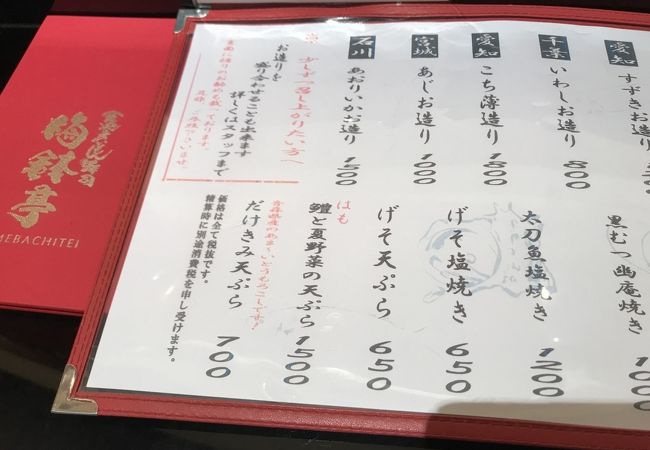 愛知
すずきお造り
千葉
いわしお造り
800
愛知
こち薄造り
1500
宮城
あじお造り
1000
石川
あおりいかお造り
1200
少しずつ召し上がりたい方へ
お造りを
盛り合わせることも出来ます
詳しくはスタッフまで
黒むつ幽庵焼き
太刀魚塩焼き
1200
げそ塩焼き
650
げそ天ぷら
650
はも
鱧と夏野菜の天ぷら
1500
青森県産のあま〜いとうもろこしです!
だけきみ天ぷら
700
価格は全て税抜です。
精算時に別途消費税を申し受けます。
梅鉢亭
MEBACHITEI